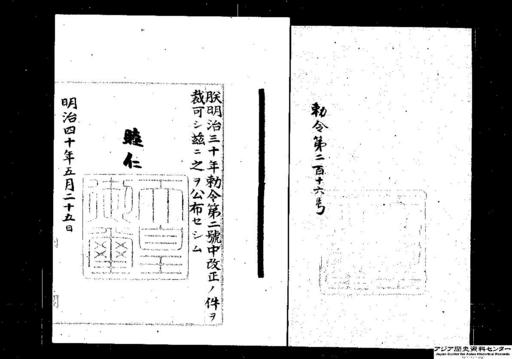 勅令第二百十六号
朕明治三十年勅令第二號中改正ノ件ヲ
裁可シ茲ニ之ヲ公布セシム
睦仁
天皇
御璽
明治四十年五月二十五日
アジア歴史資料センター
Japan Center for Asian Historical Records